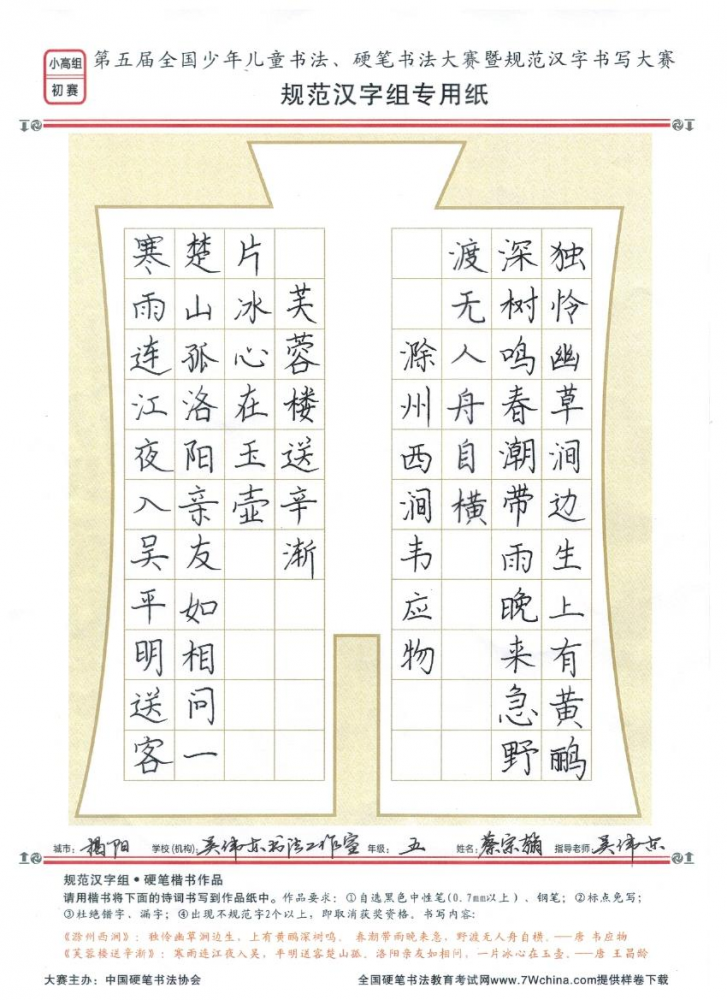 小高组
初赛
第五届全国少年儿童书法、硬笔书法大赛暨规范汉字书写大赛
规范汉字组专用纸
独怜幽草涧边生上有黄鹂
深树鸣春潮带雨晚来急野
渡无人舟自横
滁州西涧韦应物
寒雨连江夜入吴平明送客
楚山孤洛阳亲友如相问一
片冰心在玉壶
芙蓉楼送辛渐
城市：揭阳 学校(机构)：吴伟东书法工作室 年级：五 姓名：蔡宗 指导老师：吴伟东
规范汉字组·硬笔楷书作品
请用楷书将下面的诗词书写到作品纸中。作品要求：①自选黑色中性笔(0.7mm以上)、钢笔；②标点免写；
③杜绝错字、漏字；④出现不规范字2个以上，即取消获奖资格。书写内容：
《滁州西涧》：独怜幽草涧边生，上有黄鹂深树鸣。 春潮带雨晚来急，野渡无人舟自横。——唐 韦应物
《芙蓉楼送辛渐》：寒雨连江夜入吴，平明送客楚山孤。洛阳亲友如相问，一片冰心在玉壶。——唐 王昌龄
大赛主办：中国硬笔书法协会 全国硬笔书法教育考试网www.7Wchina.com提供样卷下载